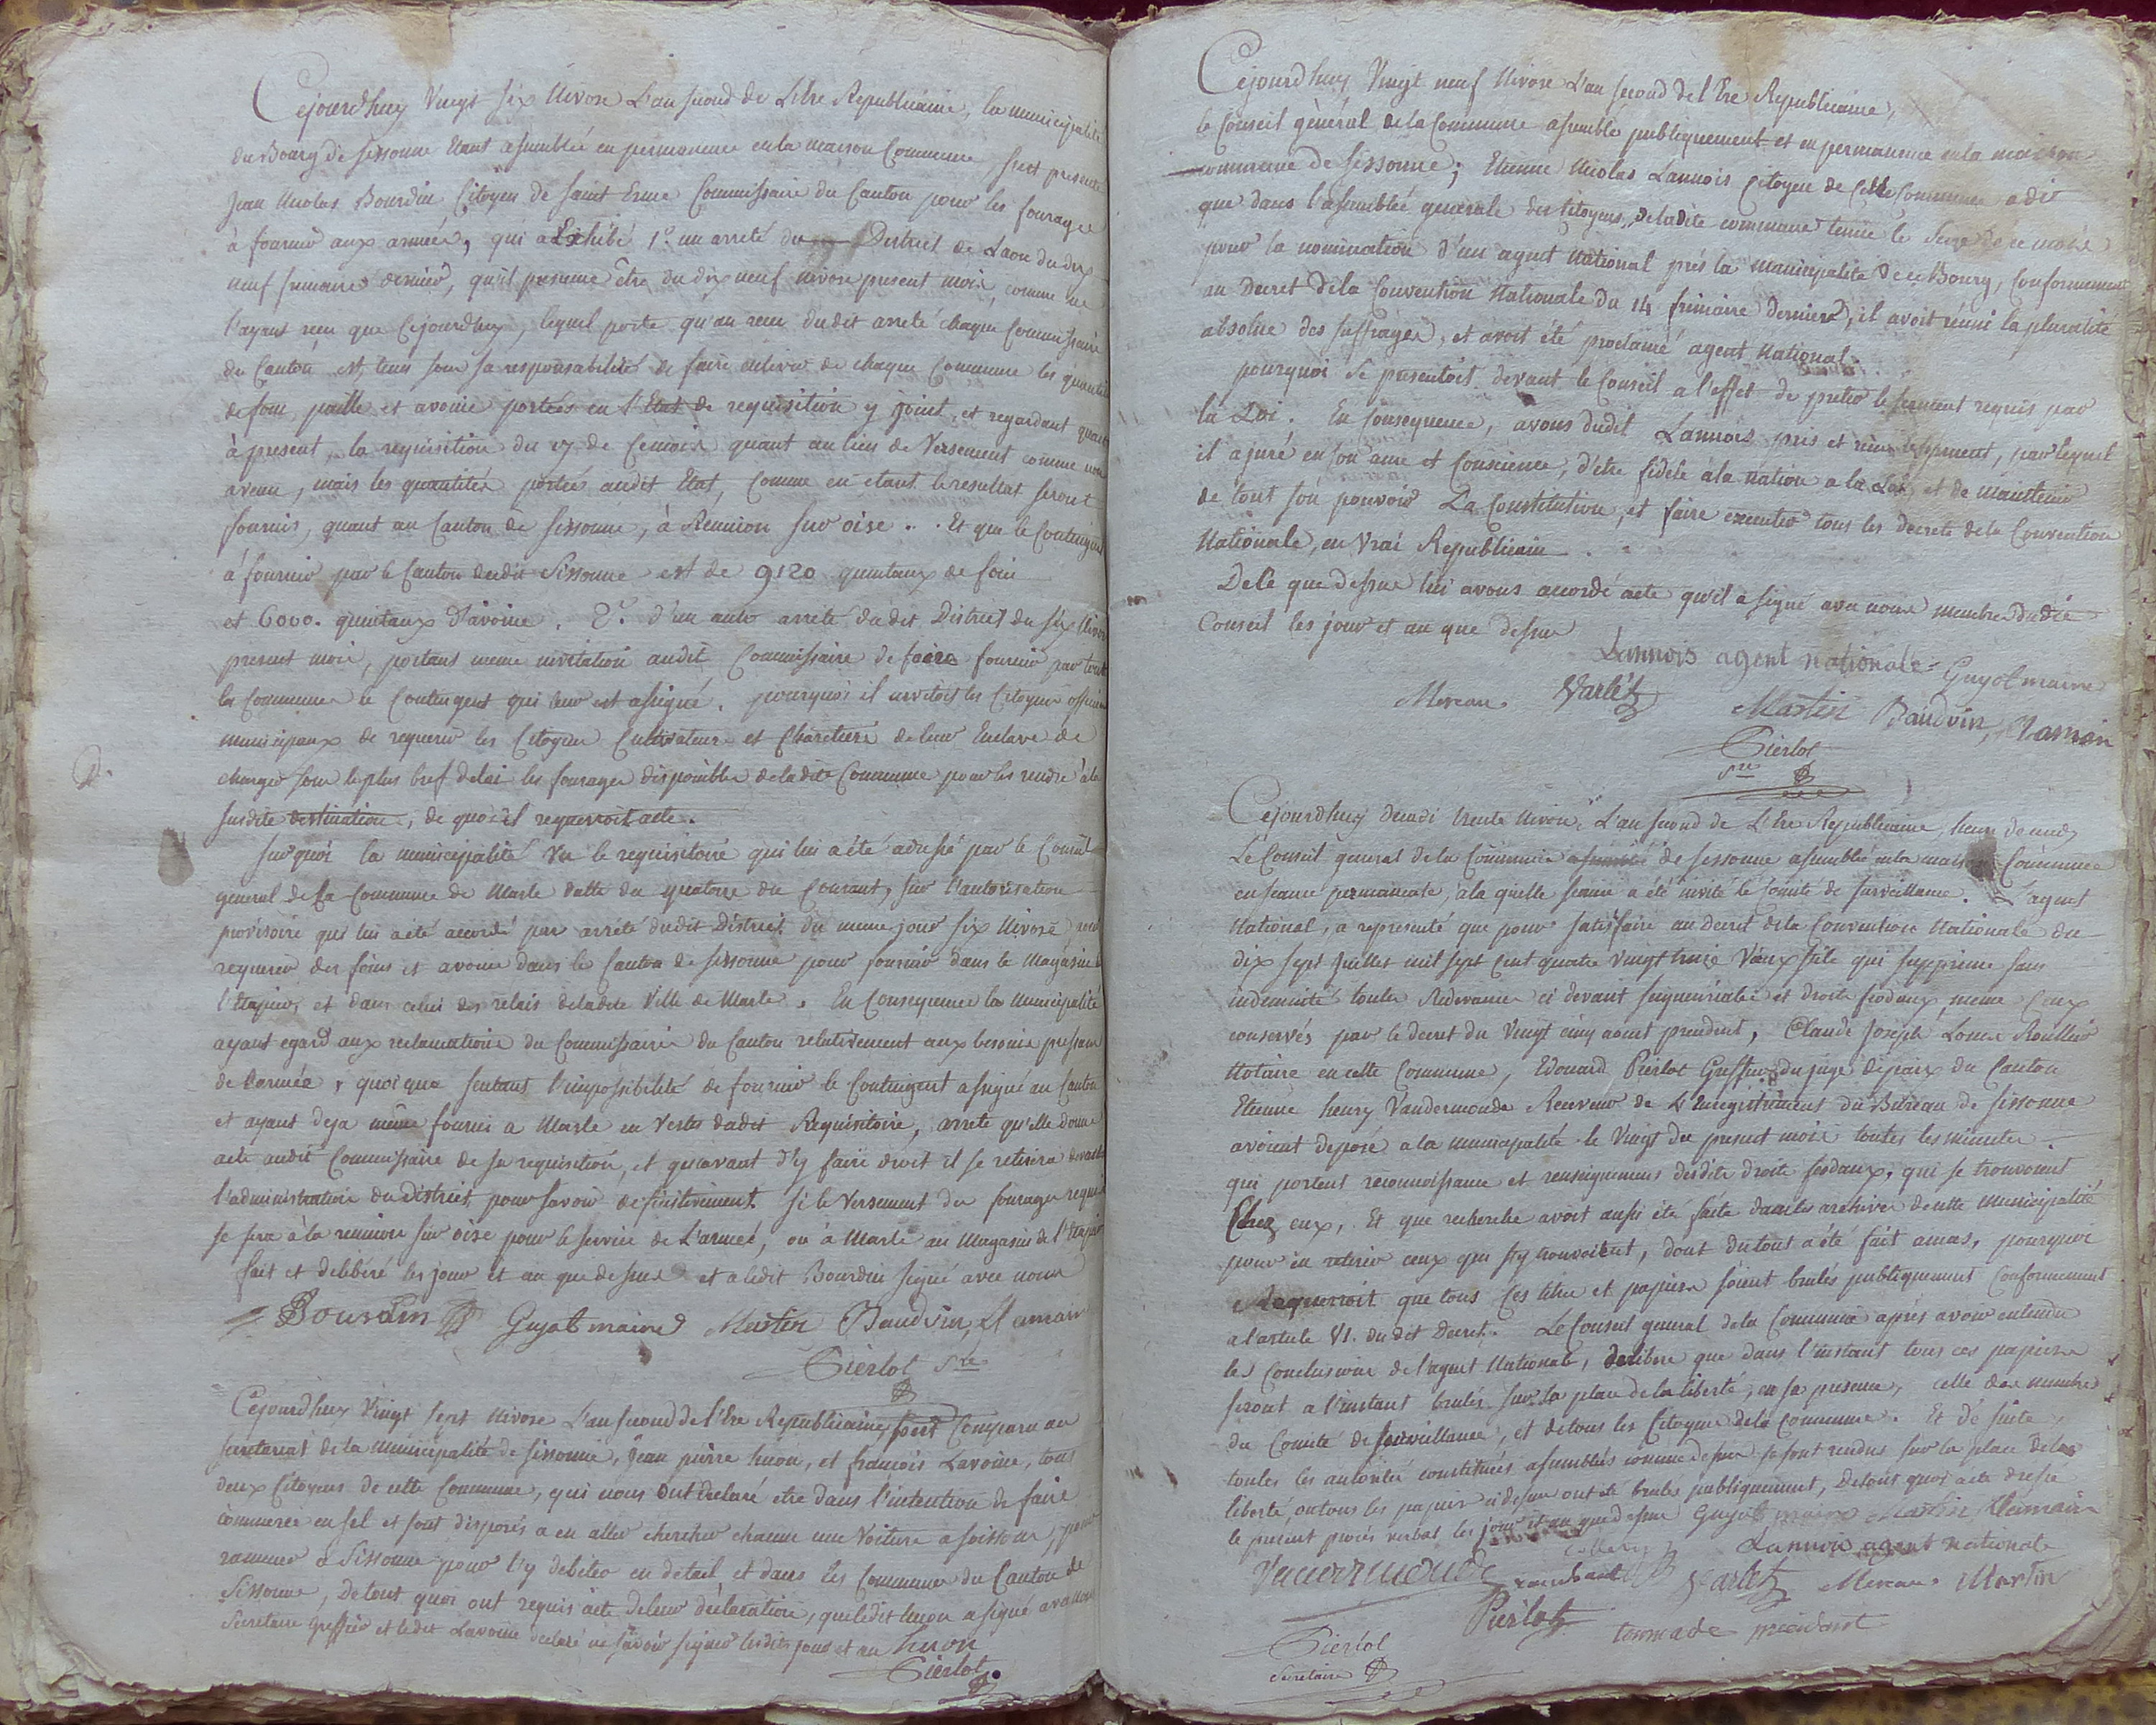 Cejourdhuy Vingt six Nivose L'an second de L'Ere Republicaine, la municipalité
du Bourg de Sissonne étant assemblée en permanence en la maison Commune, s'est presenté
Jean Nicolas Bourdin Citoyen de Saint Erme Commissaire du Canton pour les fourages
à fournir aux armées, qui a Exhibé 1.º un arreté du District de Laon du dix
neuf frimaire dernier, qu'il presume être du dix neuf nivose present mois, comme ne
l'ayant reçu que Cejourdhuy, lequel porte qu'au reçu dudit arreté chaque Commissaire
de Canton est tenu sous sa responsabilité de faire enlever de chaque Commune les quantités
de foin, paille et avoine portées en l'Etat de requisition y joint, et regardant quant
à present, la requisition du 17 de Cemois quant au lieu de Versement comme non
avenu, mais les quantités portées audit Etat, Comme en etant le resultat seront
fournis, quant au Canton de Sissonne, à Reunion sur oise .. Et que le Contingent
à fournir par le Canton dudit Sissonne est de 9120 quintaux de foin
et 6000. quintaux d'avoine. 2.º d'un autre arreté dudit District du six Nivose
present mois, portant meme invitation audit Commissaire de faire fournir par toutes
les Communes le Contingent qui leur est assigné. pourquoi il invitoit les Citoyens officiers
municipaux de requerir les Citoyens Cultivateurs et Charetiers de leur Enclave de
charger sous le plus bref delai les fourages disponibles de ladite Commune pour les rendre à la
susdite destination, de quoi il requerroit acte.
Sur quoi la municipalité Vu le requisitoire qui lui a été adressé par le Conseil
general de la Commune de Marle datté du quatorze du Courant, sur l'autorisation
provisoire qui lui a été accordé par arreté dudit District du meme jour six Nivose, pour
requerir des foins et avoine dans le Canton de Sissonne pour fournir dans le Magasin de
l'Etapier, et dans celui des relais deladite Ville de Marle. En Consequence la municipalité
ayant egard aux reclamations du Commissaire du Canton relativement aux besoins pressans
de l'armée, quoique sentant l'impossibilité de fournir le Contingent assigné au Canton
et ayant deja même fourni a Marle en Vertu dudit Requisitoire, arrete qu'elle donne
acte audit Commissaire de sa requisition, et qu'avant d'y faire droit il se retirera devant
l'administration du District pour savoir definitivement. Si le Versement du fourages requis
se fera à la reunion sur oise pour le service de L'armée, ou à Marle au Magasin de l'Etapier
fait et deliberé les jour et an que dessus et a ledit Bourdin signé avec nous
Bourdin Guyot maire Martin Baudvin, Lamain
Pierlot S.re
Cejourdhuy Vingt sept Nivose L'an second de l'Ere Republicaine, sont Comparu au
secretariat de la municipalité de Sissonne, Jean pierre huon, et françois Lavoine, tous
deux Citoyens de cette Commune, qui nous ont declaré etre dans l'intention de faire
commerce en sel et sont disposés a en aller chercher chacun une Voiture a soissons, pour
ramener à Sissonne pour l'y debiter en detail et dans les Communes du Canton de
Sissonne, De tout quoi ont requis acte de leur declaration, que ledit huon a signé avec nous
Secretaire greffier et ledit Lavoine declaré ne savoir signer lesdits jour et an huon
Pierlot.
Cejourdhuy Vingt neuf Nivose L'an second de l'Ere Republicaine,
le Conseil général de la Commune assemblé publiquement et en permanence en la maison
commune de Sissonne; Etienne Nicolas Lannois Citoyen de Cette Commune a dit
que dans l'assemblée generale des Citoyens, de ladite commune tenue le Seize de ce mois
pour la nomination d'un agent National près la Municipalité de ce Bourg, Conformement
au Decret dela Convention Nationale du 14 frimaire Dernier, il avoit reuni la pluralité
absolue des suffrages, et avoit été proclamé agent National.
pourquoi se presentoit devant le Conseil a l'effet de preter le serment requis par
la Loi. En Consequence, avons dudit Lannois pris et reçu le serment, par lequel
il a juré en son ame et Conscience, d'etre fidele à la Nation a la Loi, et de maintenir
de tout son pouvoir La Constitution, et faire executer tous les Decrets de la Convention
Nationale, en Vrai Republicain .
De Ce que dessus lui avons accordé acte qu'il a signé avec nous membres dudit
Conseil les jour et an que dessus
Lannois agent nationale Guyot maire
Mereau Varlet Martin Baudvin, Lamain
Pierlot
S.re
Cejourdhuy Decadi trente Nivose L'an second de L'Ere Republicaine, heure de midy
Le Conseil general de la Commune de Sissonne assemblé en la maison Commune
en seance permanente, à la quelle seance a été invité le Comité de Surveillance. L'agent
National, a representé que pour satisfaire au Decret de la Convention Nationale du
dix sept Juillet mil sept Cent quatre Vingt treize Vieux stile qui supprime sans
indemnité toutes Redevances ci devant seigneuriales et droits feodaux, meme Ceux
conservés par le decret du Vingt cinq aout precedent, Claude Joseph Louis Roullier
Notaire en cette Commune, Edouard Pierlot Greffier du juge depaix du Canton
Etienne henry Vandermonde Receveur de L'Enregistrement du Bureau de Sissonne
avoient deposé a la municipalité le Vingt du present mois toutes les minutes
qui portent reconnoissance et renseignemens desdits droits feodaux, qui se trouvoient
Chez eux, Et que recherche avoit aussi été faite dans les archives de cette municipalité
pour en retirer ceux qui s'y trouvoient, dont du tout a été fait amas, pourquoi
requerroit que tous Ces titres et papiers soient brulés publiquement Conformement
a l'article VI. dudit Decret. Le Conseil general de la Commune après avoir entendu
les Conclusions de l'agent Nationale, delibere que dans l'instant tous ces papiers
seront a l'instant brulés sur la place de la liberté, en sa presence, celle des membres
du Comité de surveillance, et de tous les Citoyens de la Commune. Et de suite
toutes les autorités constituées assemblées comme dessus se sont rendus sur la place de la
liberté, ou tous les papiers ci dessus ont été brulés publiquement, De tout quoi a été dressé
le present procès verbal les jour et an que dessus Guyot maire Martin Lamain
Vandermonde Lannois agent nationale
Varlet Mereau Martin
Pierlot
Pierlot president
Secretaire